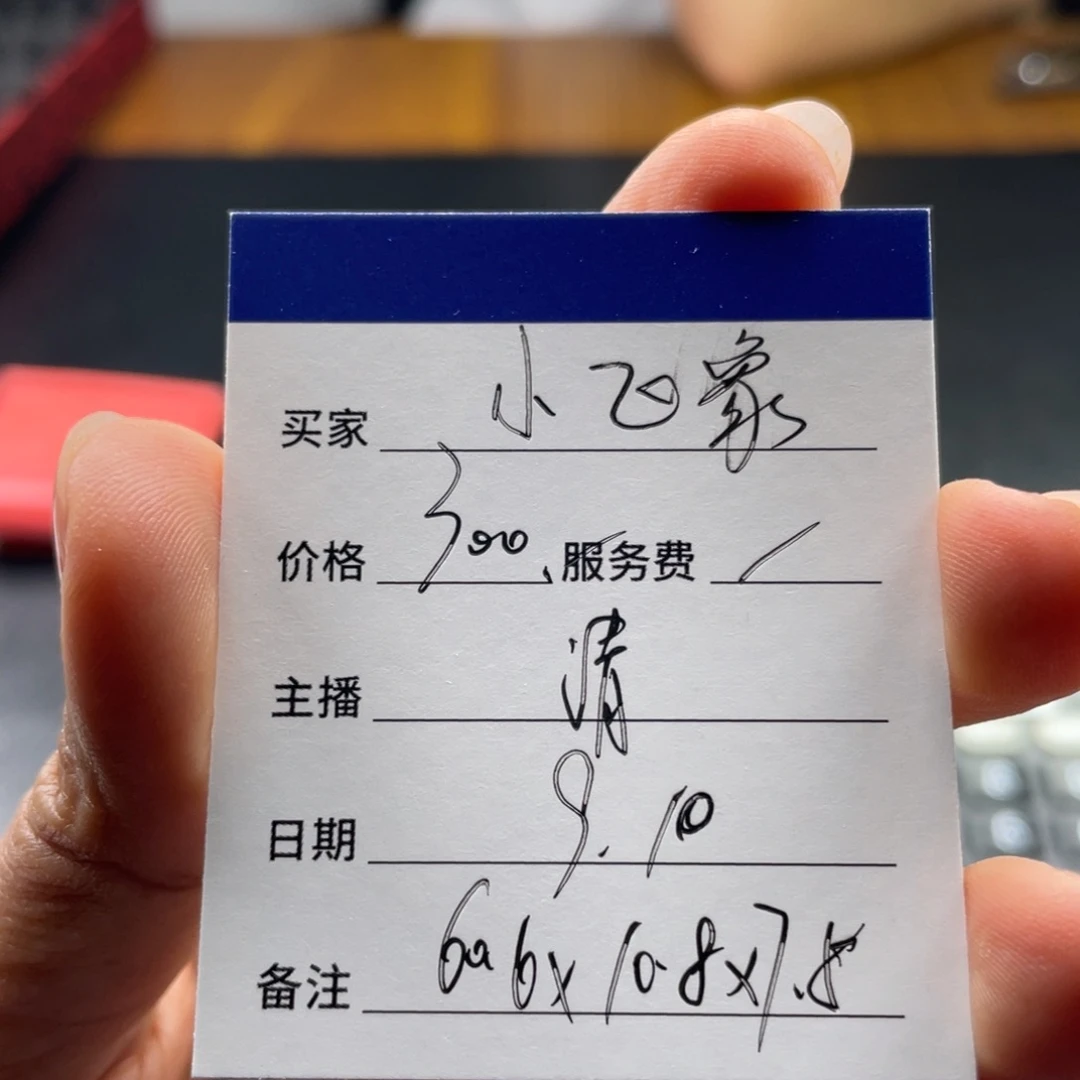 买家 小飞象
价格 300、服务费 /
主播 清
日期 9.10
备注 60.6x10.8x7.8